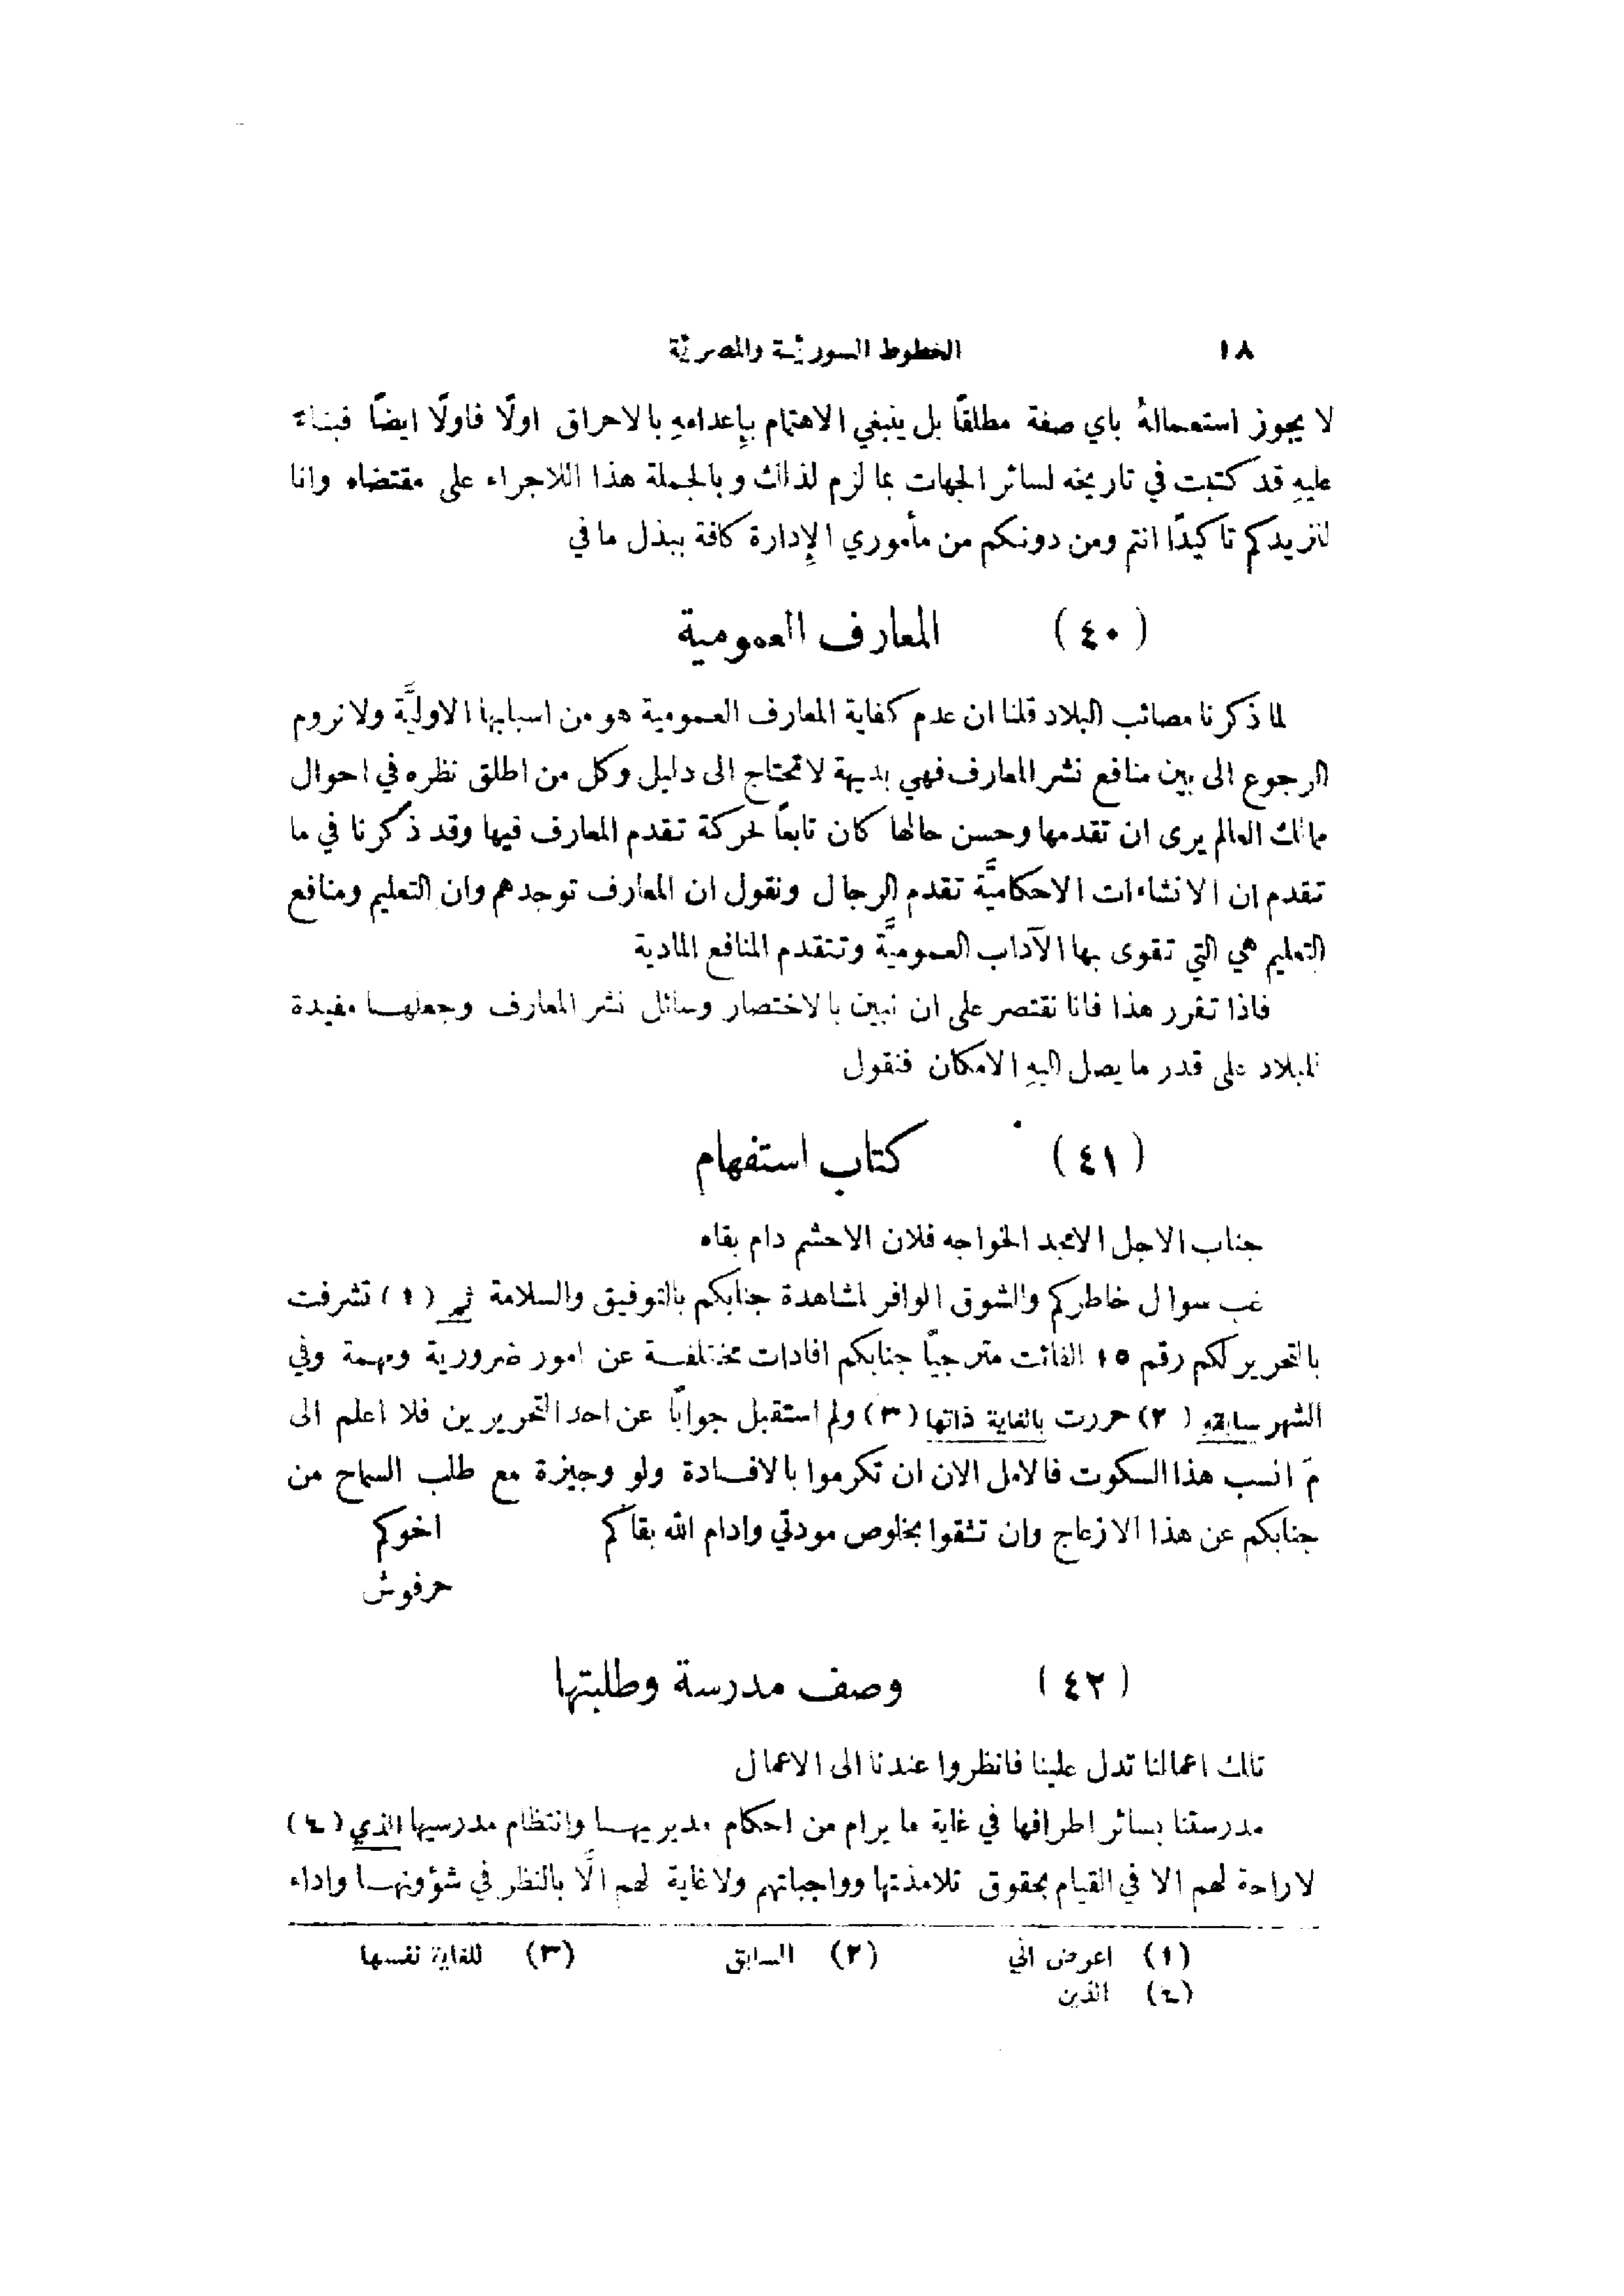 ١٨ الخطوط السوريّة والمصريّة
لا يجوز استعمالهُ باي صفة مطلقًا بل ينبغي الاهتمام بإعدامهِ بالاحراق اولًا فاولًا ايضًا فبناءً
عليهِ قد كتبت في تاريخه لسائر الجهات بما لزم لذلك وبالجملة هذا اللاجراء على مقتضاه وانا
لنزيدكم تاكيدًا انتم ومن دونكم من مأموري الإدارة كافة ببذل ما في
(٤٠) المعارف العمومية
لما ذكرنا مصائب البلاد قلنا ان عدم كفاية المعارف العمومية هو من اسبابها الاوليَّة ولا نروم
الرجوع الى بين منافع نشر المعارف فهي بديهة لا تحتاج الى دليل وكل من اطلق نظره في احوال
ممالك العالم يرى ان تقدمها وحسن حالها كان تابعاً لحركة تقدم المعارف فيها وقد ذكرنا في ما
تقدم ان الانشاءات الاحكاميَّة تقدم الرجال ونقول ان المعارف توجدهم وان التعليم ومنافع
التعليم هي التي تقوى بها الآداب العموميَّة وتتقدم المنافع المادية
فاذا تقرر هذا فانا نقتصر على ان نبين بالاختصار وسائل نشر المعارف وجعلهـا مفيدة
للبلاد على قدر ما يصل اليهِ الامكان فنقول
(٤١) كتاب استفهام
جناب الاجل الامجد الخواجه فلان الاحشم دام بقاه
غب سوال خاطركم والشوق الوافر لمشاهدة جنابكم بالتوفيق والسلامة ثم (١) تشرفت
بالتحرير لكم رقم ١٥ الفائت مترجيًا جنابكم افادات مختلفـة عن امور ضرورية ومهمة وفي
الشهر سابقه (٢) حررت بالغاية ذاتها (٣) ولم استقبل جوابًا عن احد التحريرين فلا اعلم الى
مَ انسب هذا السكوت فالامل الان ان تكرموا بالافـادة ولو وجيزة مع طلب السماح من
جنابكم عن هذا الازعاج وان تثقوا بخلوص مودتي وادام الله بقاكم اخوكم
حرفوش
(٤٢) وصف مدرسة وطلبتها
تلك اعمالنا تدل علينا فانظروا عندنا الى الاعمال
مدرستنا بسائر اطرافها في غاية ما يرام من احكام مديريهـا وانتظام مدرسيها الذي (٤)
لا راحة لهم الا في القيام بحقوق تلامذتها وواجباتهم ولا غاية لهم الَّا بالنظر في شؤونهـا واداء
(١) اعرض اني (٢) السابق (٣) للغاية نفسها
(٤) الذين